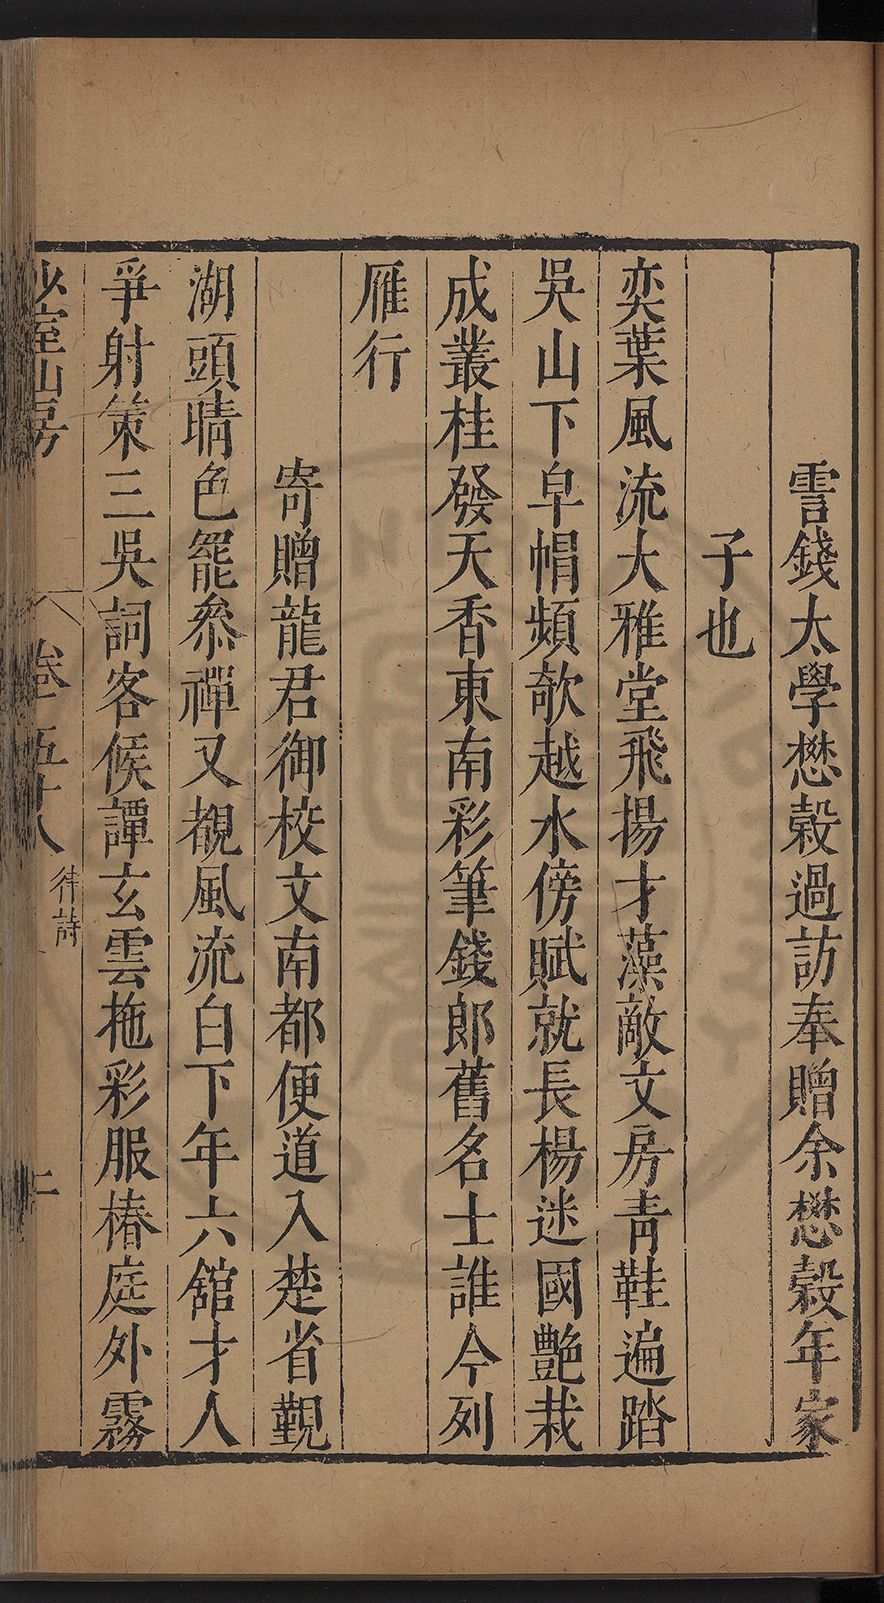 霅錢太學懋穀過訪奉贈余懋穀年家
子也
奕葉風流大雅堂飛揚才藻敵文房青鞋遍踏
吳山下皁帽頻欹越水傍賦就長楊迷國艷栽
成叢桂發天香東南彩筆錢郎舊名士誰令列
雁行
寄贈龍君御校文南都便道入楚省覲
湖頭晴色罷叅禪又覩風流白下年六舘才人
爭射策三吳詞客候譚玄雲拖彩服椿庭外霧
少室山房
卷五十八
律詩
二